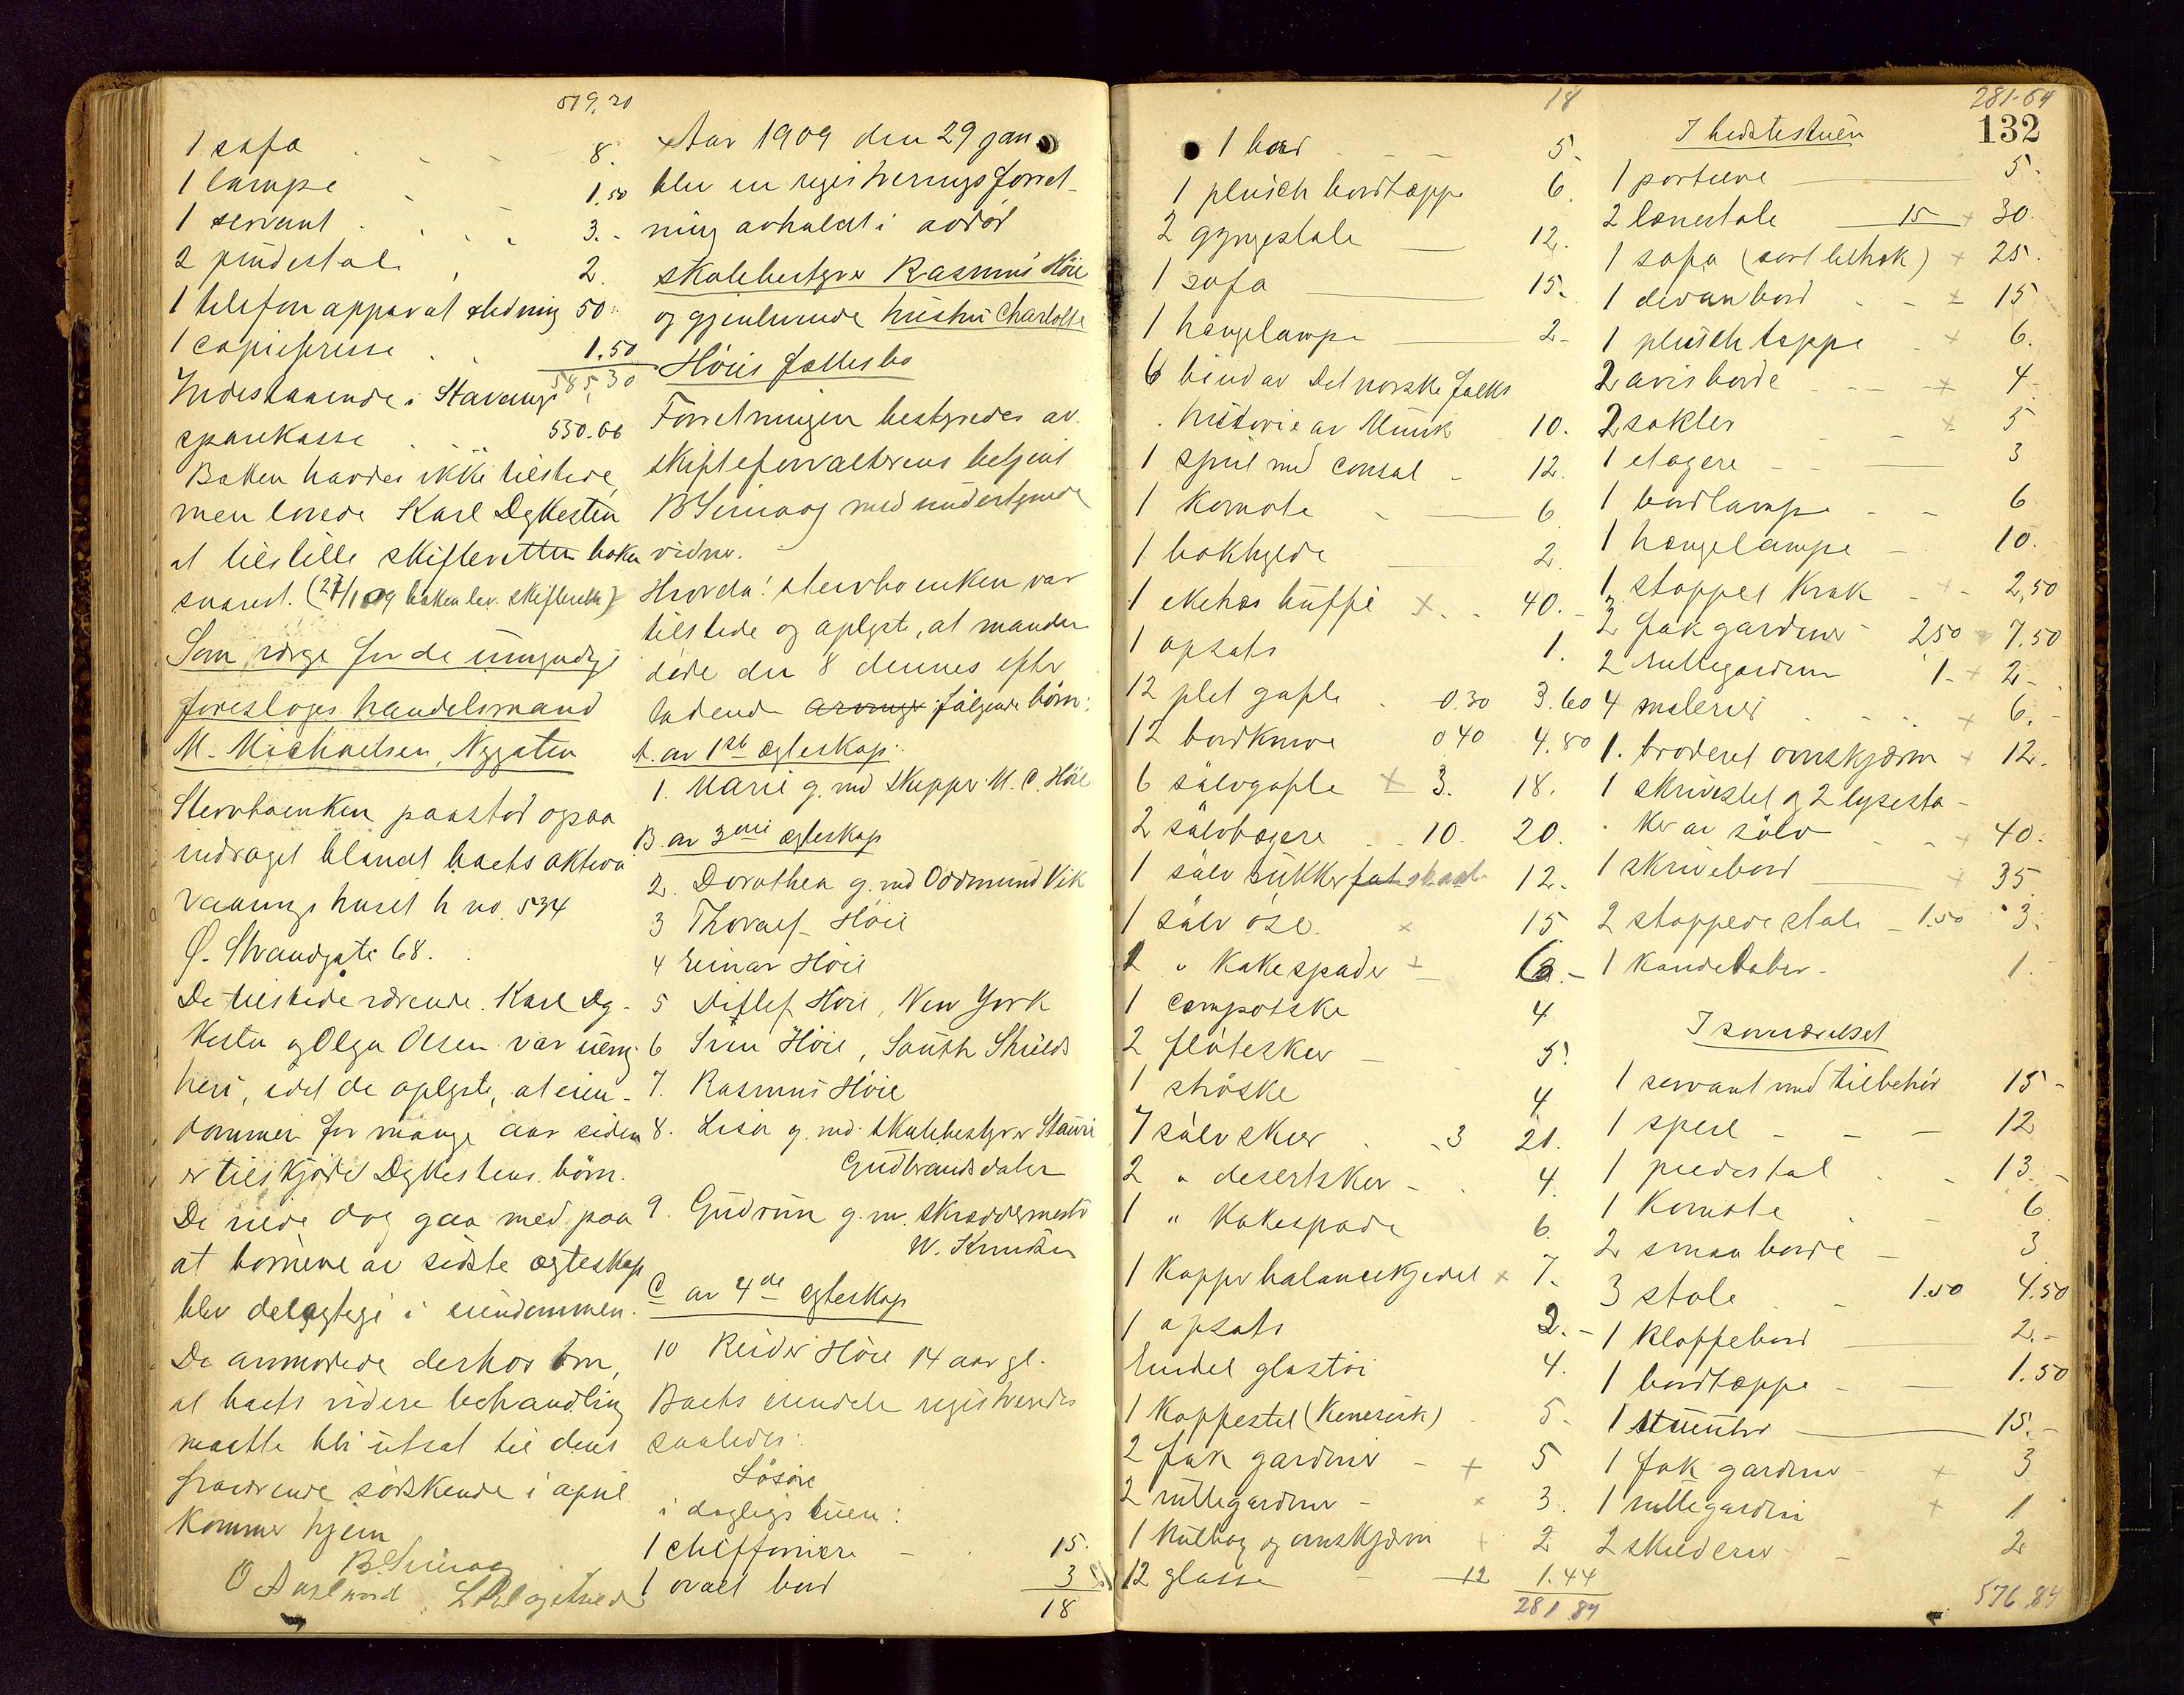 519,20
1 sofa 8.
1 lampe 1.50
1 servant 3.-
2 pindestole 2.
1 telefonapparat ledning 50
1 copiepresse 1.50
585,30
Indestaaende i Stavanger
sparekasse 550.06
Boken havdes ikke tilstede,
men lovede Karl Dykesten
at tilstille skifteretten boken
snarest. (27/1 09 boken lev. skifteretten)
Som værge for de umyndige
foresloges handelsmand
M. Michaelsen, Nygaten
Stervboenken paastod ogsaa
inddraget blandt boets aktiva
vaaningshuset h no. 534
Ø. Strandgate 68.
De tilstedeværende Karl Dy-
kesten og Olga Olsen var uenig
heri, idet de oplyste, at eien-
dommen for mange aar siden
er tilskjødet Dykestens börn.
De vilde dog gaa med paa
at börnene av sidste egteskap
blev delagtige i eiendommen.
De anmodede derhos om,
at boets videre behandling
maatte bli utsat til deres
fraværende söskende i april
kommer hjem
B. Simoog
O Axelword L Pl
Aar 1909 den 29 jan.
blev en registreringsforret-
ning avholdt i avdöd
skolebestyrer Rasmus Höie
og gjenlevende hustru Charlotte
Höies fællesbo
Forretningen bestyredes av
skifteforvalterens betjent
B Simoog med undertegnede
vidner.
Hvorda! stervboenken var
tilstede og oplyste, at manden
döde den 8 dennes efter
ladende arvinger fölgende börn:
A. av 1ste egteskap:
1. Marie g. med skipper M. C. Höie
B. av 3die egteskap
2. Dorothea g. med Oddmund Vik
3 Thoralf Höie
4 Einar Höie
5 Ditlef Höie, New York
6 Sven Höie, South Shields
7. Rasmus Höie
8. Lisa g. med skolebestyrer Stauri
Gudbrandsdalen
9. Gudrun g. m. skræddermester
W. Knudsen
C av 4de egteskap
10 Reidar Höie 14 aar gl.
Boets eiendele registreredes
saaledes:
Lösöre
i dagligstuen:
1 chiffoniere - 15.
1 ovalt bord 3
18
18
1 bord 5.
1 plusch bordtæppe 6.
2 gyngestole 12.
1 sofa 15.
1 hængelampe 2-
6 bind av Det norske folks
historie av Munk 10.
1 speil med consol 12.
1 komode 6
1 bokhylde 2.
1 ekehos buffé x 40.-
1 opsats 1.
12 plet gafle 0.30 3.60
12 bordknive 0 40 4.80
6 sölvgafle x 3. 18.
2 sölvbægere 10. 20.
1 sölv sukkerfat skaal 12.-
1 sölv öse. x 15
2 " kakespader + 6.-
1 compotske 4
2 flöteskeer 5.
1 ströske 4
7 sölvskeer 3 21.
2 " desertskeer - 4.
1 " kakespade 6.
1 kopper balancekjedel x 7.
1 opsats 2.-
Endel glastöi 4.
1 koppestel (kinesisk) 5.
2 fak gardiner + 5
2 rullegardiner x 3.
1 kulbox og ovnskjærm + 2
12 glasse 12 1.44
281.84
281-84
132
I bedstestuen
1 portiere 5.
2 lænestole 15 + 30.
1 sofa (sort betræk) x 25.
1 divanbord x 15
1 pluschtæppe x 6.
2 avisborde x 4.
2 sokler x 5
1 etagere 3
1 bordlampe 6
1 hængelampe 10.
1 stoppet krak 2,50
3 fak gardiner 2 50 7.50
2 rullegardiner 1.+ 2-
4 malerier x 6.-
1. broderet ovnskjærm x 12.
1 skrivestel og 2 lysesta-
ker av sölv x 40.
1 skrivebord x 35
2 stoppede stole 1.50 3.
1 kandelaber. 1.
I soveværelset
1 servant med tilbehör 15-
1 speil 12
1 piedestal 13.-
1 komode 6
2 smaa borde 3
3 stole 1.50 4.50
1 klappebord 2.-
1 bordtæppe 1.50
1 stueuhr 15.-
1 fak gardiner x 3
1 rullegardin + 1
2 skilderier 2
576.84